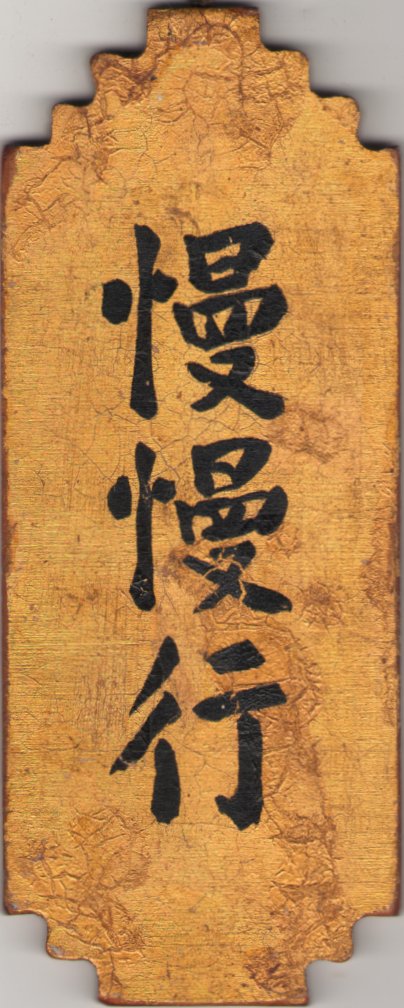 慢慢行